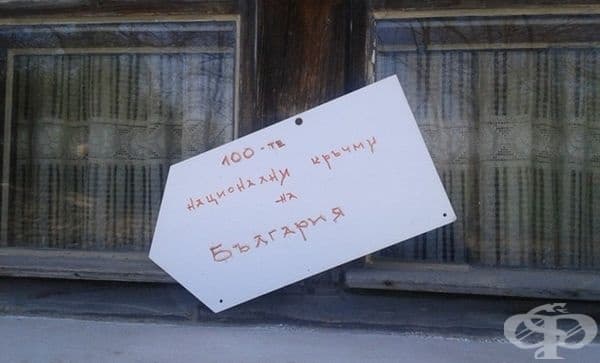 100-те
национални кръчми
на
България